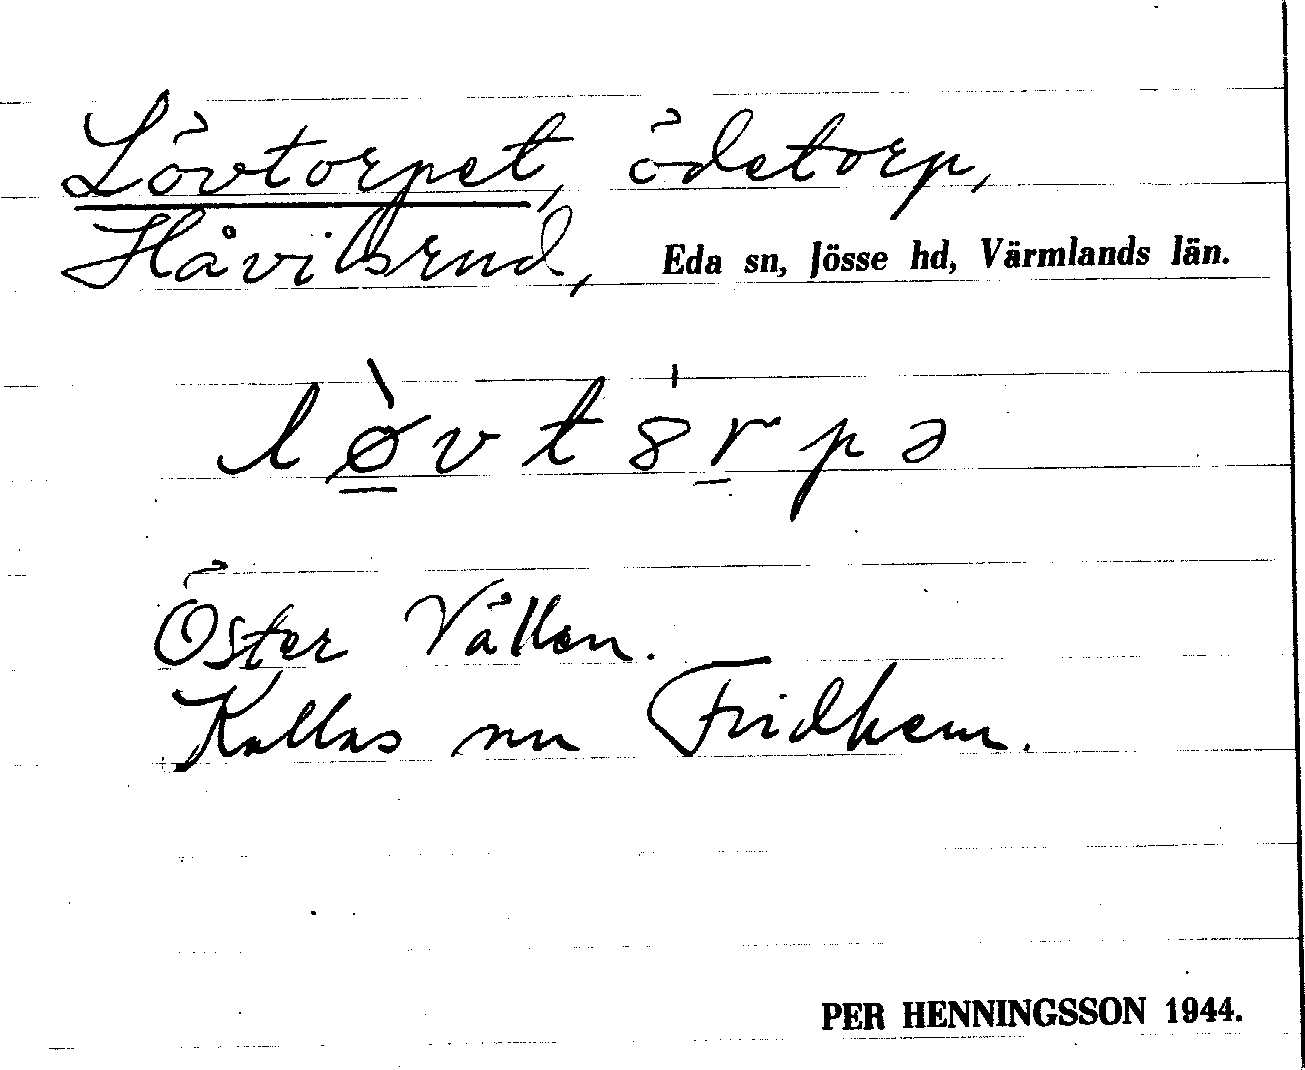 Lövtorpet, ödetorp,
Håvilsrud, Eda sn, Jösse hd, Värmlands län.
lø̱̀vtȣṟpə
Öster Vållen.
Kallas nu Fridhem.
PER HENNINGSSON 1944.